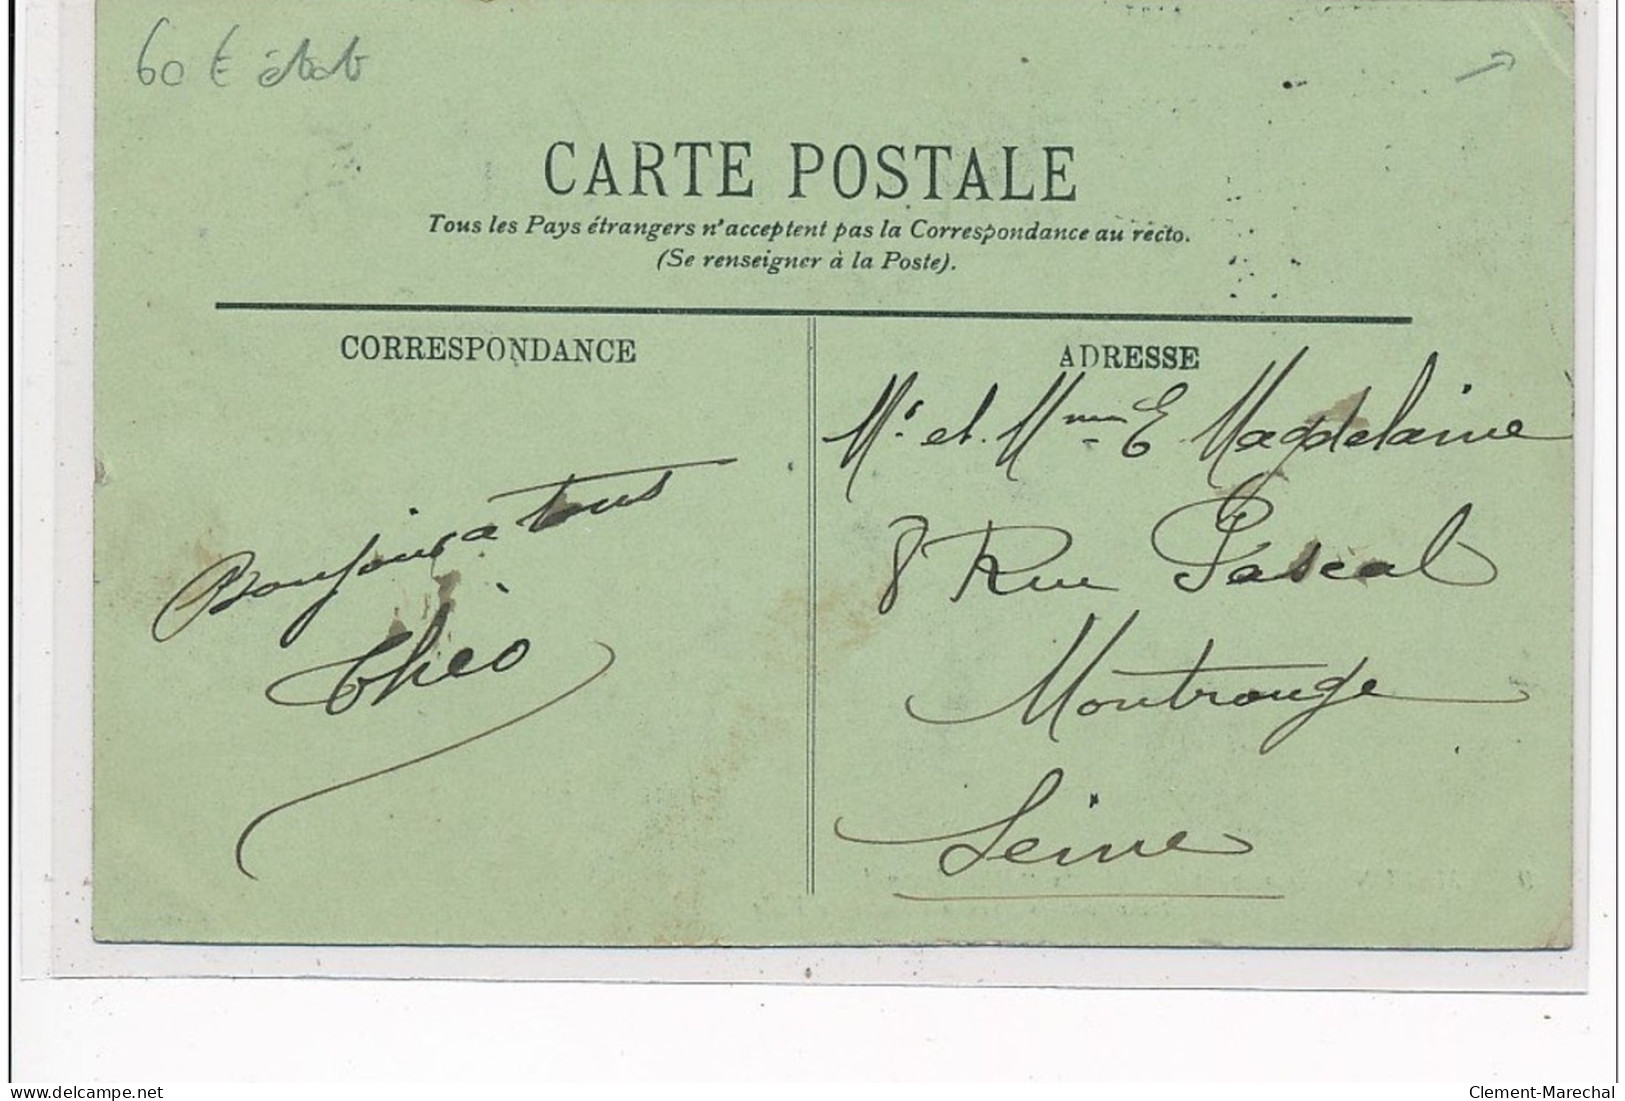 60 € état
CARTE POSTALE
Tous les Pays étrangers n'acceptent pas la Correspondance au recto.
(Se renseigner à la Poste).
CORRESPONDANCE
Bonjour a tous
Théo
ADRESSE
Mr. et Mme E Magdelaine
8 Rue Pascal
Montrouge
Seine
delcampe.net
Clement-Marechal